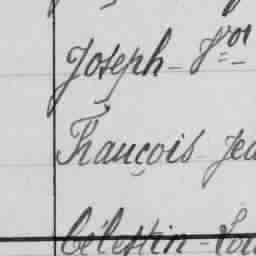 Joseph-
François-Jea
Célestin-Lou